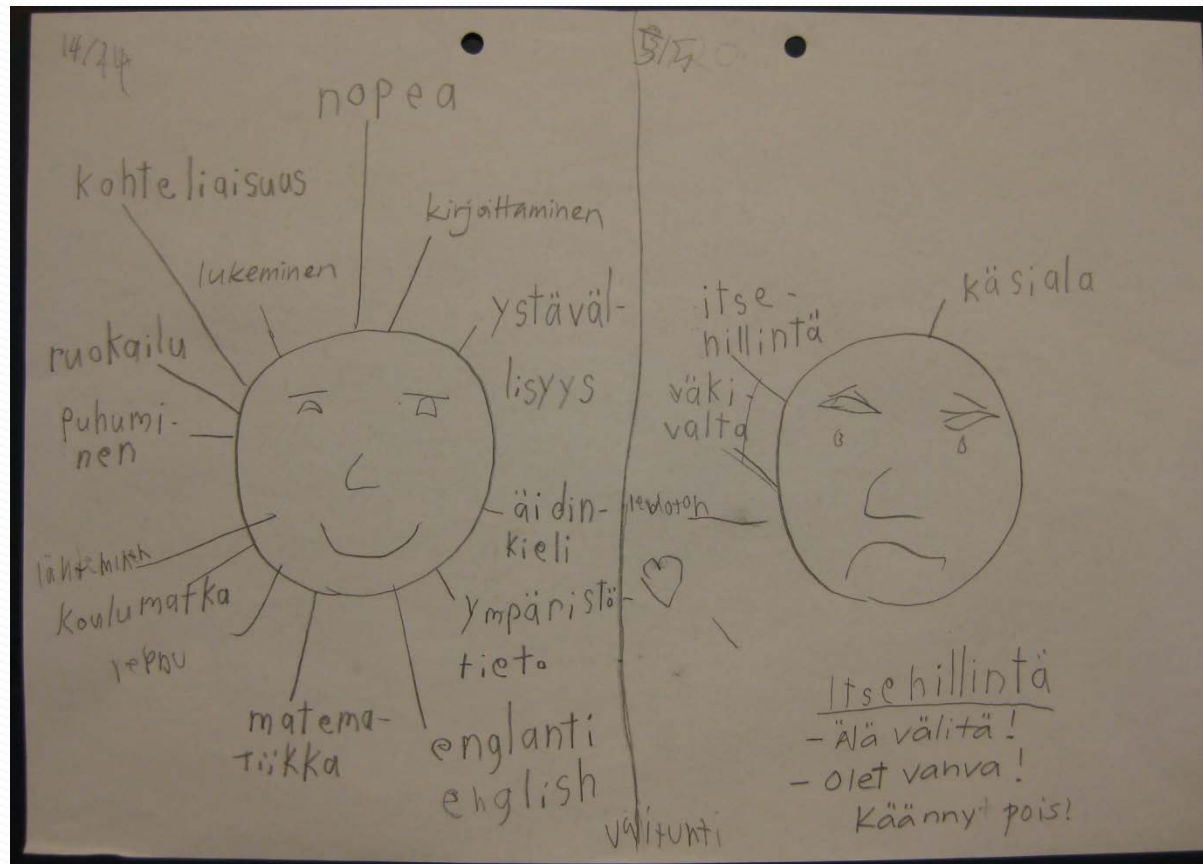 14/14
nopea
kohteliaisuus
kirjoittaminen
lukeminen
ystäväl-
lisyys
ruokailu
puhumi-
nen
äidin-
kieli
lähteminen
koulumatka
reppu
ympäristö-
tieto
matema-
tiikka
englanti
english
välitunti
käsiala
itse-
hillintä
väki-
valta
Itsehillintä
- Älä välitä!
- Olet vahva!
Käännyt pois!